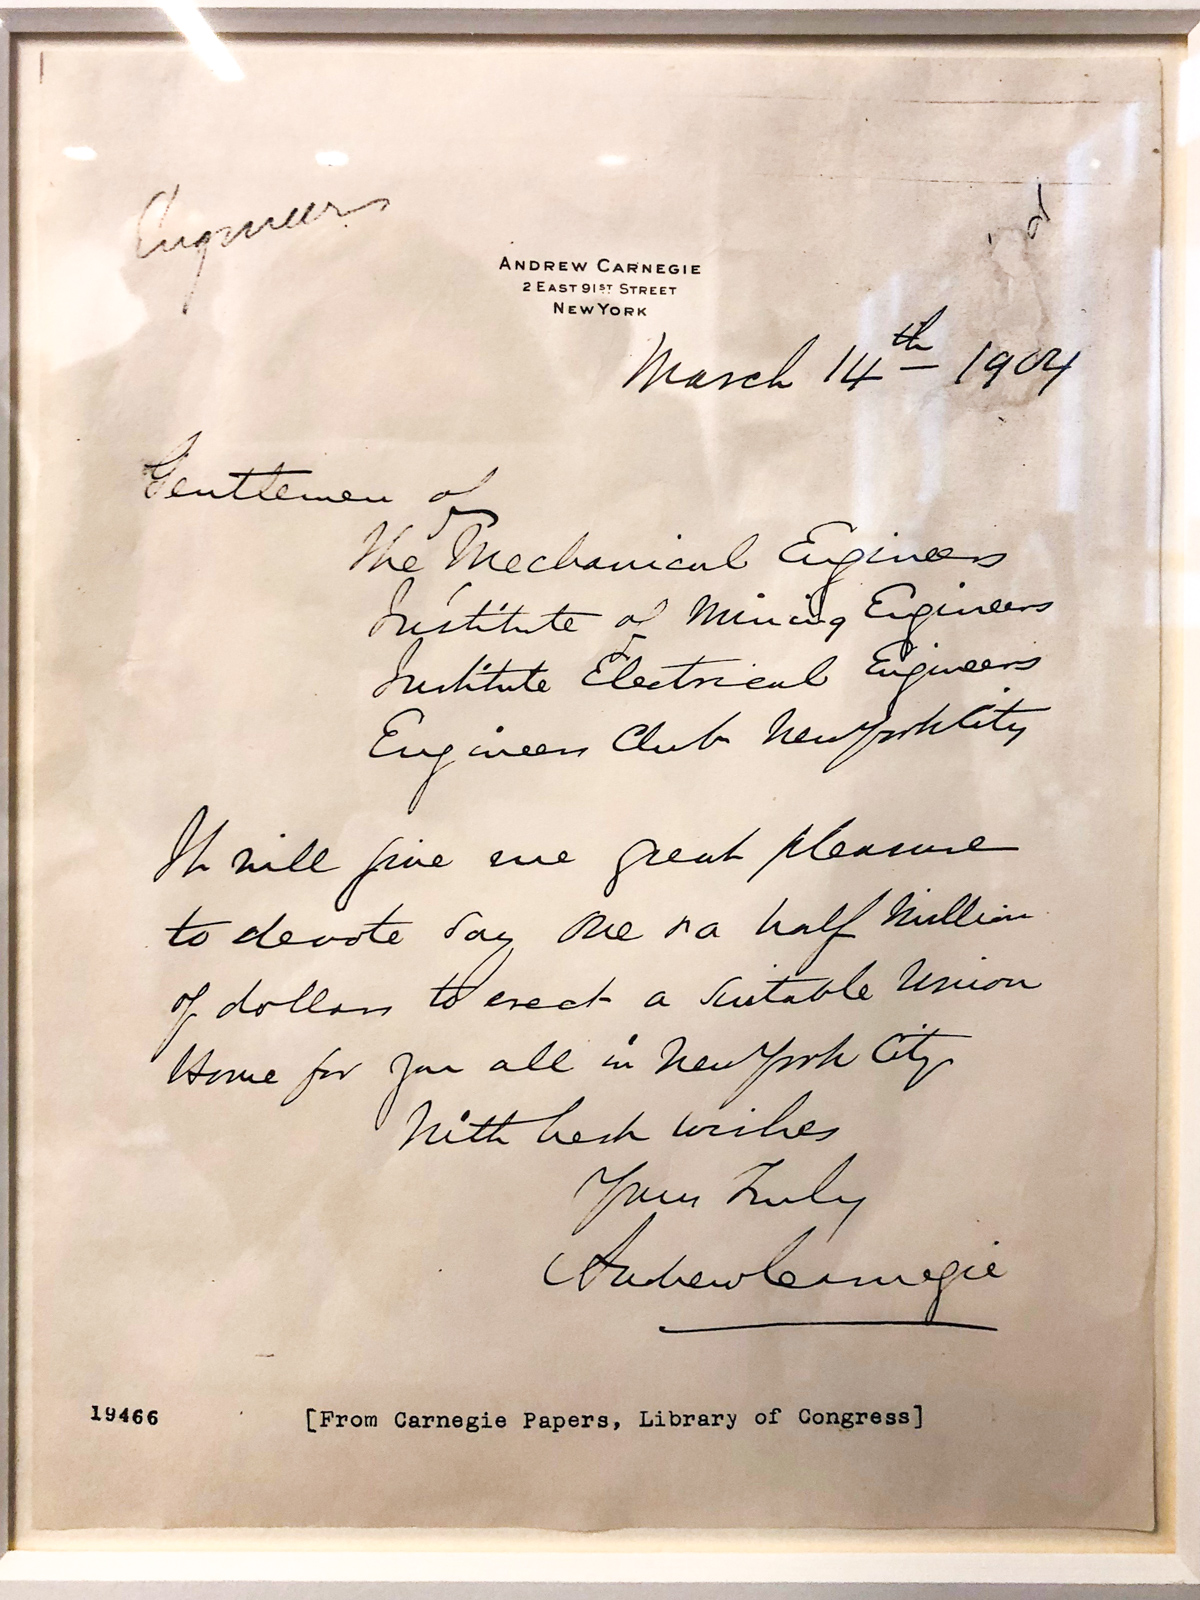 Engineers
ANDREW CARNEGIE
2 EAST 91ST STREET
NEW YORK
March 14th 1904
Gentlemen of
The Mechanical Engineers
Institute of Mining Engineers
Institute Electrical Engineers
Engineers Club New York City
It will give me great pleasure
to devote say One & a half Million
of dollars to erect a suitable Union
Home for you all in New York City
With best wishes
Yours Truly
Andrew Carnegie
19466
[From Carnegie Papers, Library of Congress]